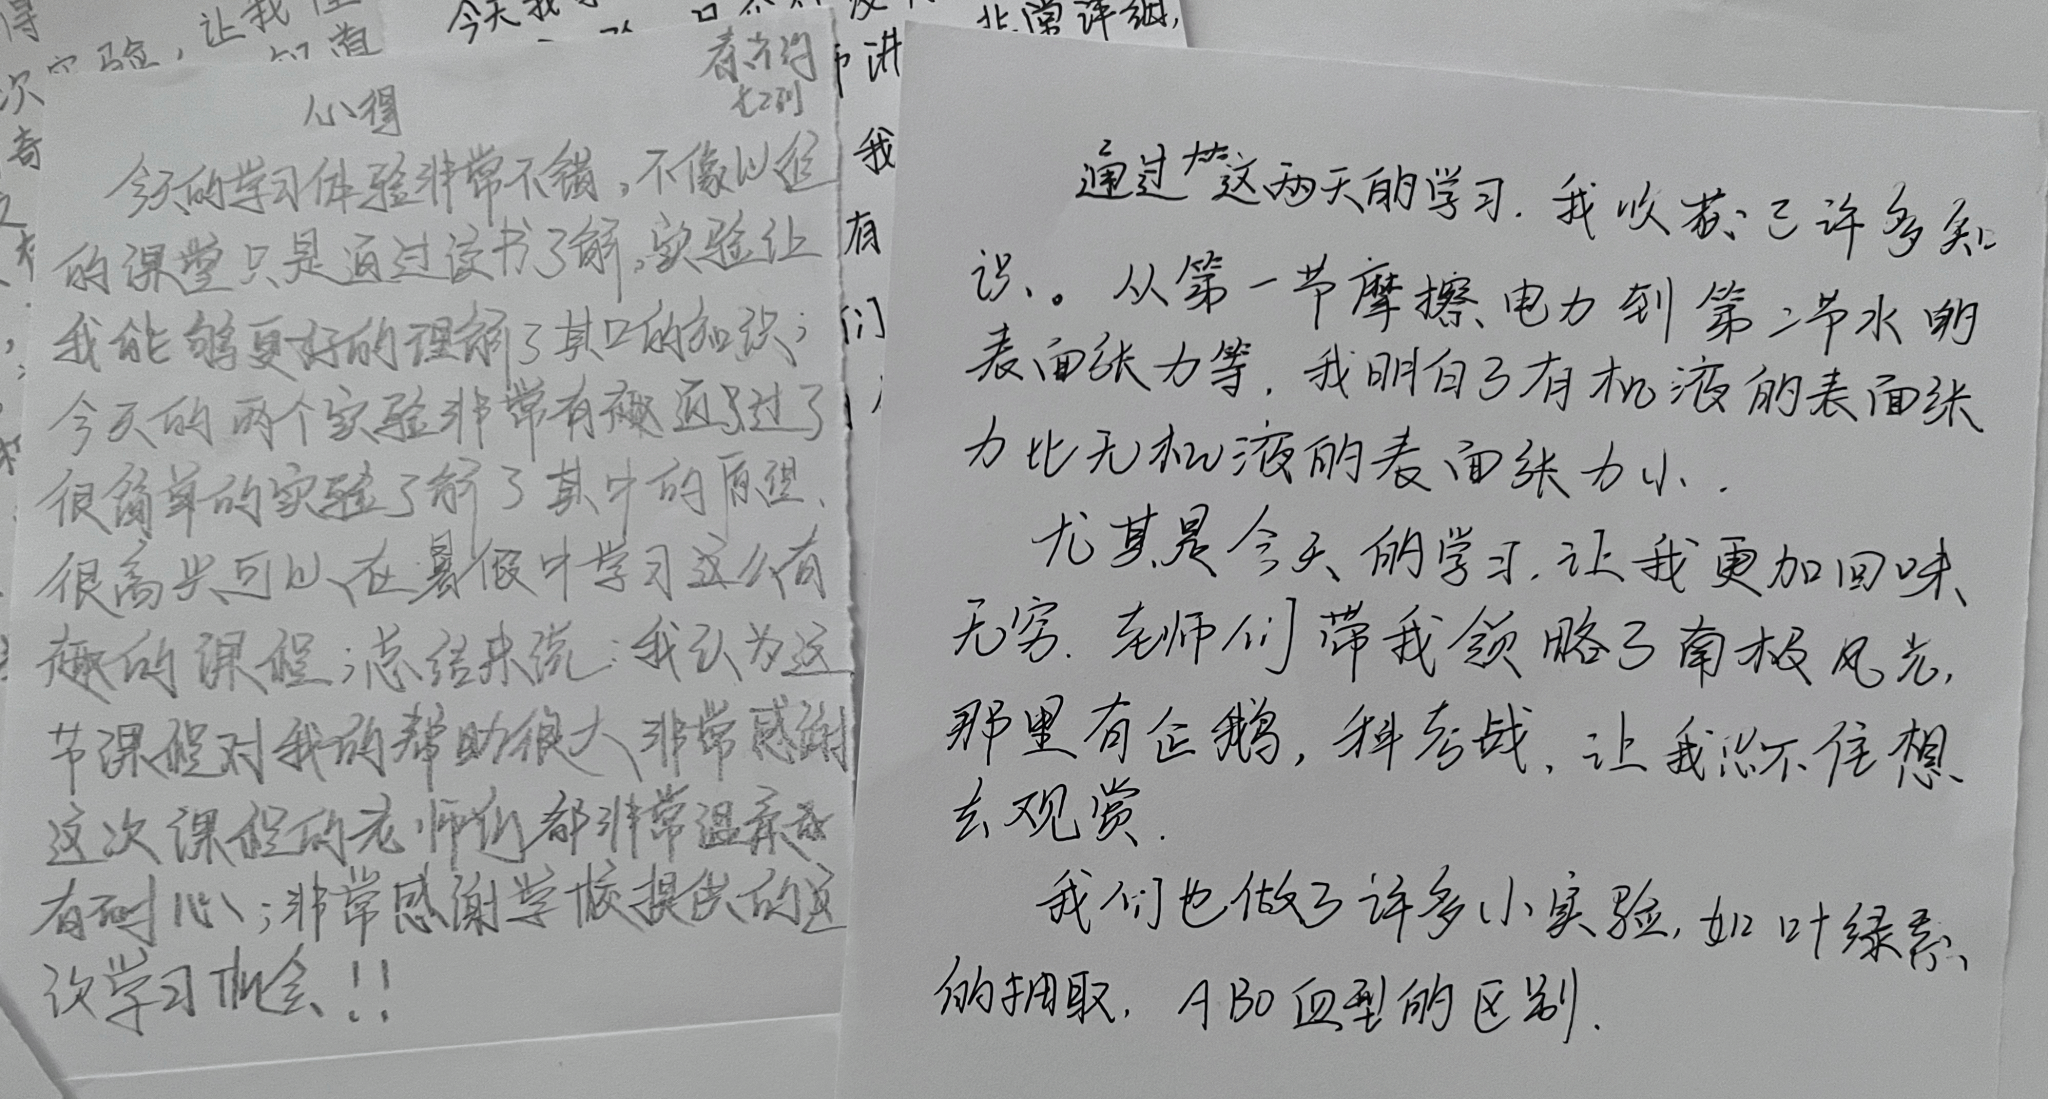 心得
今天的学习体验非常不错，不像以往
的课堂只是通过读书了解，实验让
我能够更好的理解了其中的知识；
今天的两个实验非常有趣通过了
很简单的实验了解了其中的原理、
很高兴可以在暑假中学习这么有
趣的课程；总结来说：我认为这
节课程对我的帮助很大非常感谢
这次课程的老师们都非常温柔
有耐心；非常感谢学校提供的这
次学习机会！！
通过这两天的学习，我收获已许多知
识。从第一节摩擦电力到第二节水的
表面张力等，我明白了有机液的表面张
力比无机液的表面张力小．
尤其是今天的学习，让我更加回味
无穷．老师们带我领略了南极风光，
那里有企鹅，科考战，让我忍不住想
去观赏．
我们也做了许多小实验，如叶绿素
的抽取，ABO血型的区别．
今天我
非常详细，
师讲
我
有
们
得
次实验，让我